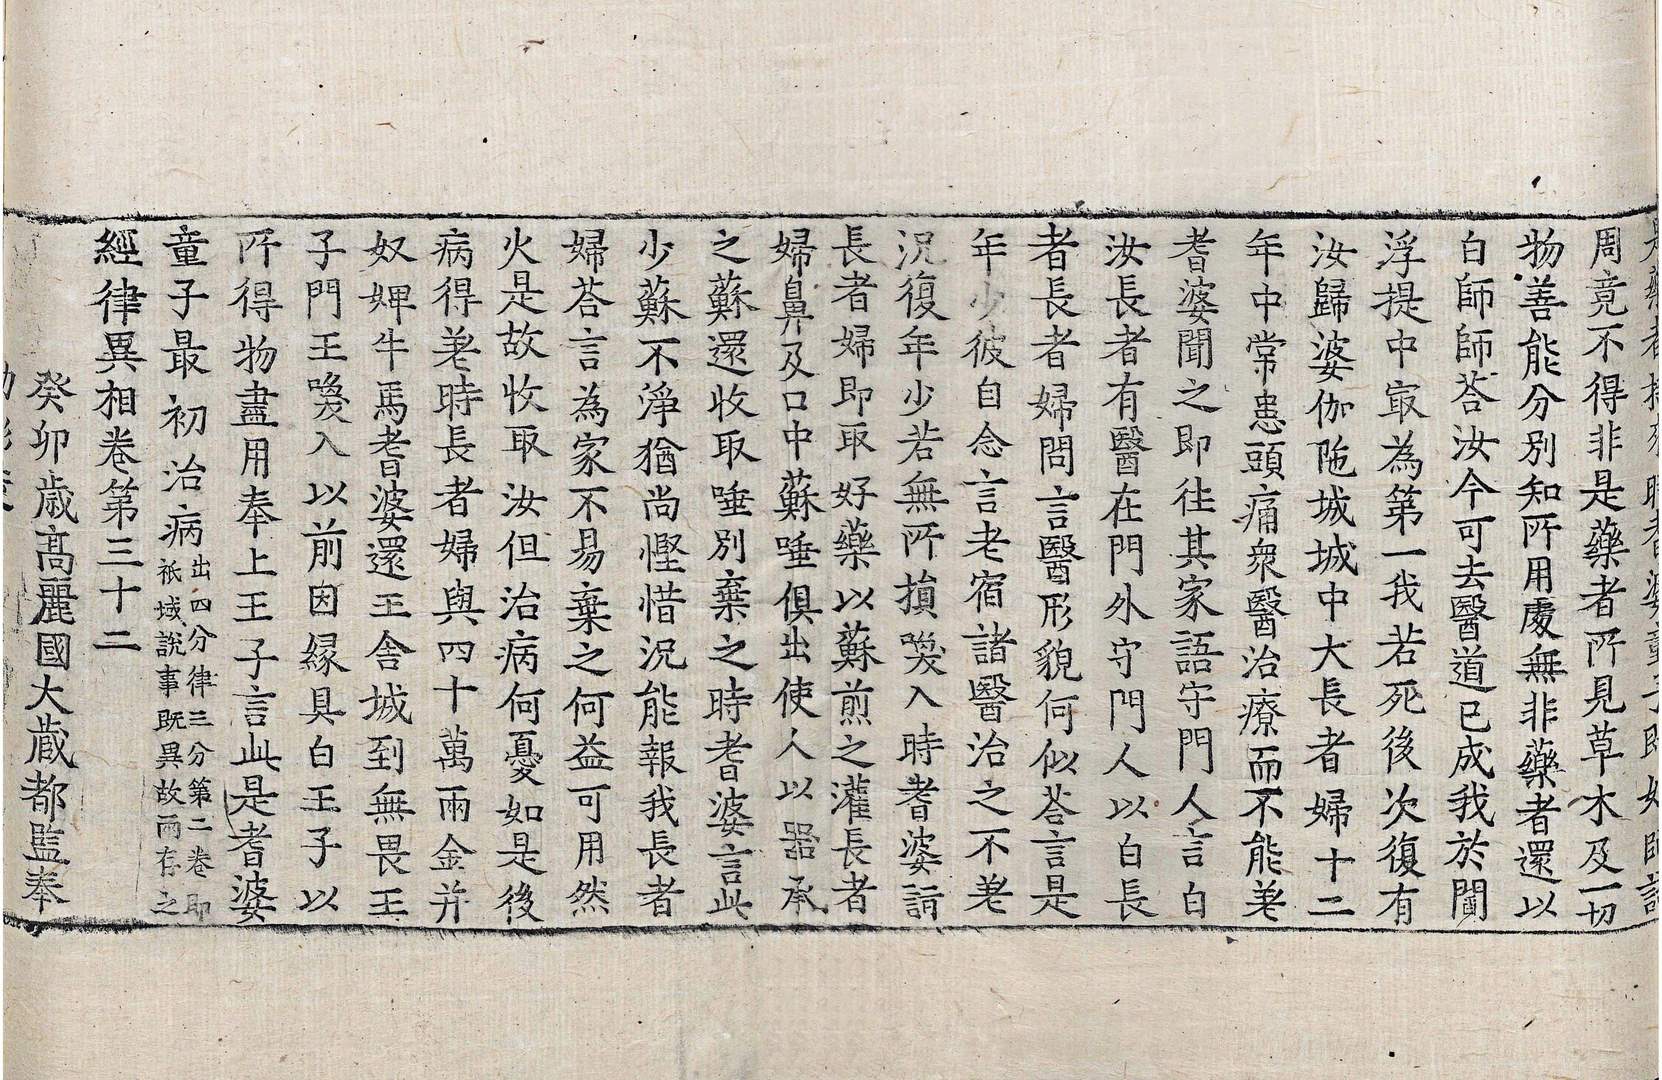 周竟不得非是藥者所見草木及一切
物善能分別知所用處無非藥者還以
白師師荅汝今可去醫道已成我於閻
浮提中㝡為第一我若死後次復有
汝歸婆伽陁城城中大長者婦十二
年中常患頭痛衆醫治療而不能差
耆婆聞之即往其家語守門人言白
汝長者有醫在門外守門人以白長
者長者婦問言醫形貌何似荅言是
年少彼自念言老宿諸醫治之不差
況復年少若無所損喚入時耆婆詣
長者婦即取好藥以蘇煎之灌長者
婦鼻及口中蘇唾俱出使人以器承
之蘇還收取唾別棄之時耆婆言此
少蘇不淨猶尚慳惜況能報我長者
婦荅言為家不易棄之何益可用然
火是故收取汝但治病何憂如是後
病得差時長者婦與四十萬兩金并
奴婢牛馬耆婆還王舍城到無畏王
子門王喚入以前因緣具白王子以
所得物盡用奉上王子言此是耆婆
童子最初治病出四分律三分第二卷即
祇域說事既異故兩存之
經律異相卷第三十二
癸卯歲高麗國大藏都監奉